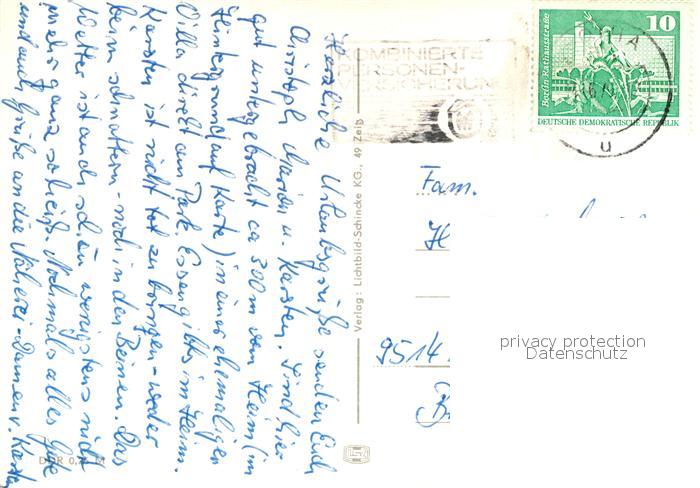 Herzliche Urlaubsgrüße senden Euch
Christoph, Marion u. Karsten. Sind hier
gut untergebracht ca 300m vom Heim (im
Hintergrund auf Karte) in einer ehemaligen
Villa direkt am Park. Essen gibts im Heim.
Karsten ist nicht tot zu kriegen - weder
beim schnattern - noch in den Beinen. Das
Wetter ist auch schön wenigstens nicht
mehr ganz so heiß. Nochmals alles Gute
und auch Grüße an die Näherei-Damen v. Karsten
DDR 0,
Verlag: Lichtbild-Schincke KG., 49 Zeitz
KOMBINIERTE
PERSONEN-
10
Berlin, Rathausstraße
DEUTSCHE DEMOKRATISCHE REPUBLIK
u
Fam.
H
9514
privacy protection
Datenschutz